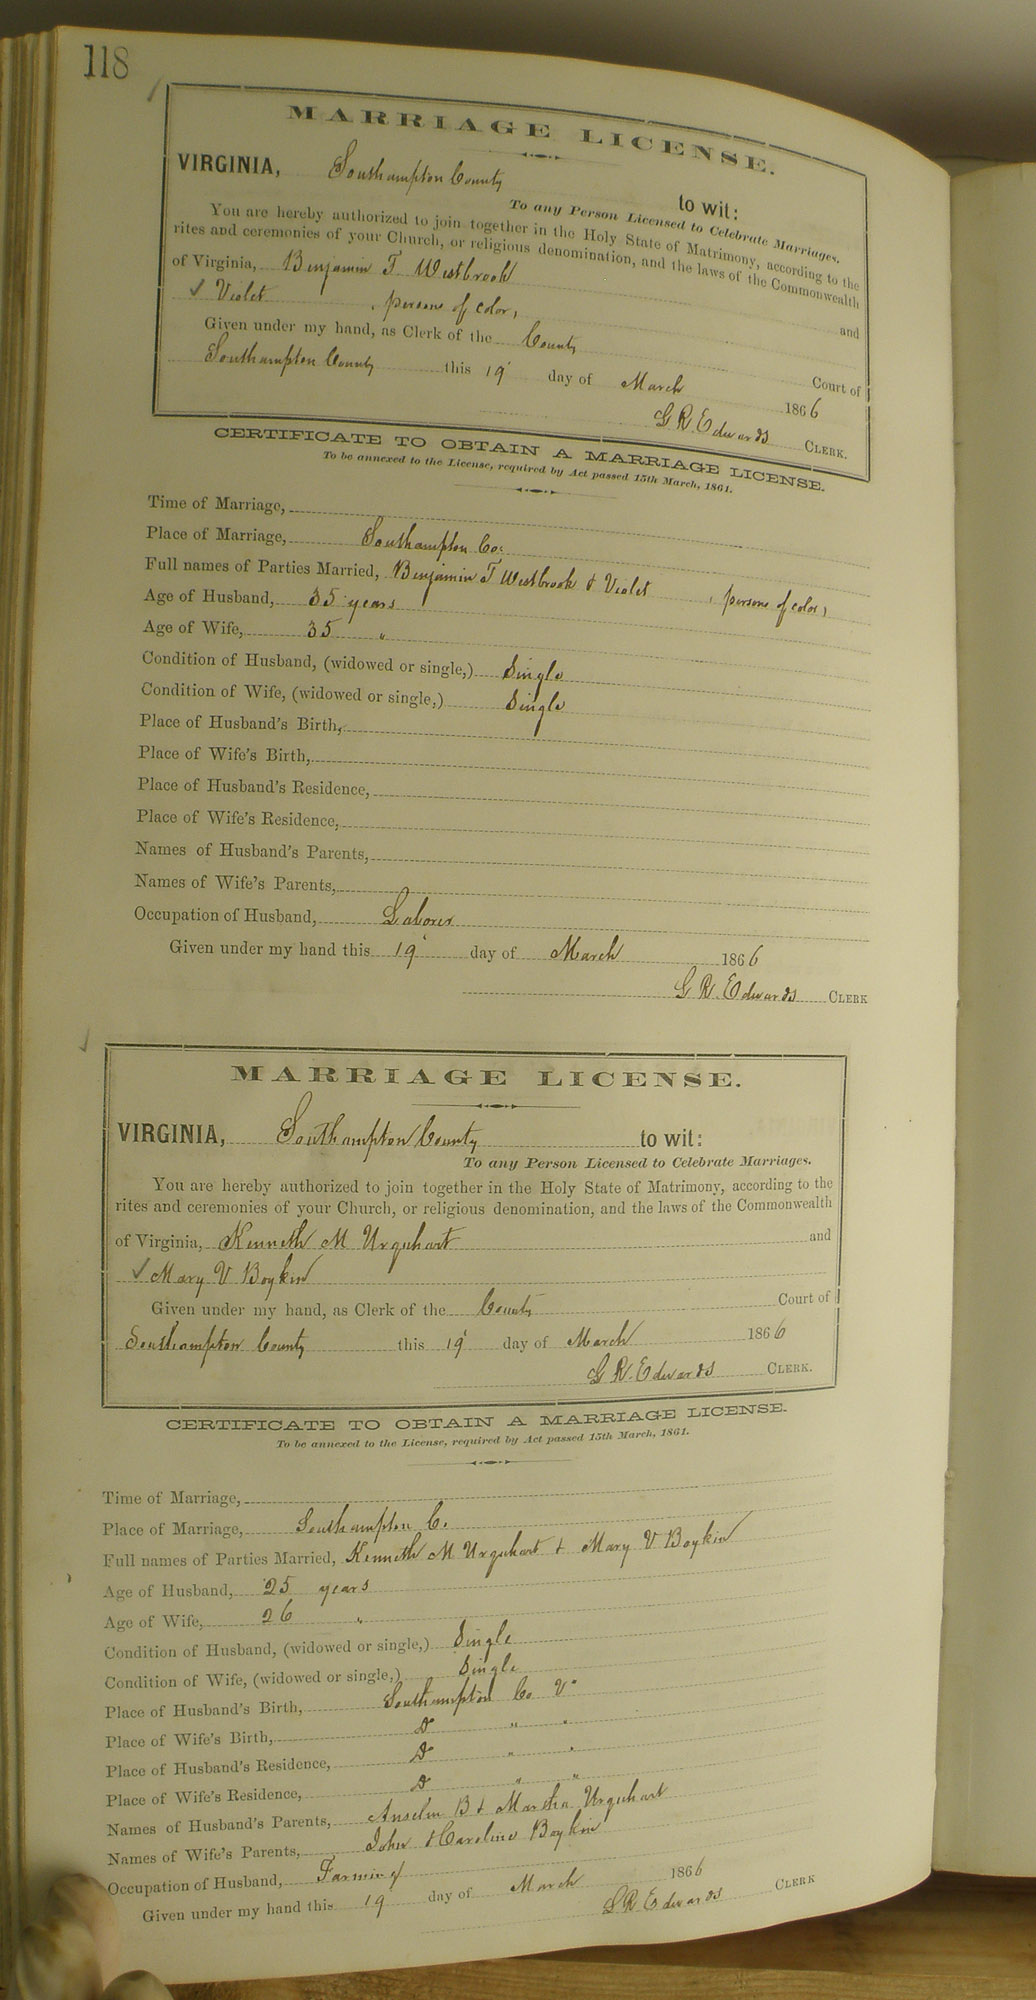 118
MARRIAGE LICENSE.
VIRGINIA, Southampton County to wit:
To any Person Licensed to Celebrate Marriages.
You are hereby authorized to join together in the Holy State of Matrimony, according to the
rites and ceremonies of your Church, or religious denomination, and the laws of the Commonwealth
of Virginia, Benjamin T Westbrook and
✓ Violet , persons of color,
Given under my hand, as Clerk of the County Court of
Southampton County this 19 day of March 1866
G R. Edwards CLERK.
CERTIFICATE TO OBTAIN A MARRIAGE LICENSE.
To be annexed to the License, required by Act passed 15th March, 1861.
Time of Marriage,
Place of Marriage, Southampton Co:
Full names of Parties Married, Benjamin T Westbrook & Violet , persons of color,
Age of Husband, 35 years
Age of Wife, 35 "
Condition of Husband, (widowed or single,) Single
Condition of Wife, (widowed or single,) Single
Place of Husband's Birth,
Place of Wife's Birth,
Place of Husband's Residence,
Place of Wife's Residence,
Names of Husband's Parents,
Names of Wife's Parents,
Occupation of Husband, Laborer
Given under my hand this 19 day of March 1866
G R. Edwards CLERK
MARRIAGE LICENSE.
VIRGINIA, Southampton County to wit:
To any Person Licensed to Celebrate Marriages.
You are hereby authorized to join together in the Holy State of Matrimony, according to the
rites and ceremonies of your Church, or religious denomination, and the laws of the Commonwealth
of Virginia, Kenneth M Urquhart and
✓ Mary V Boykin
Given under my hand, as Clerk of the County Court of
Southampton County this 19 day of March 1866
G R. Edwards CLERK.
CERTIFICATE TO OBTAIN A MARRIAGE LICENSE.
To be annexed to the License, required by Act passed 15th March, 1861.
Time of Marriage,
Place of Marriage, Southampton C.
Full names of Parties Married, Kenneth M Urquhart & Mary V Boykin
Age of Husband, 25 years
Age of Wife, 26 "
Condition of Husband, (widowed or single,) Single
Condition of Wife, (widowed or single,) Single
Place of Husband's Birth, Southampton Co Va
Place of Wife's Birth, Do " "
Place of Husband's Residence, Do " "
Place of Wife's Residence, Do " "
Names of Husband's Parents, Anselm B & Martha Urquhart
Names of Wife's Parents, John & Caroline Boykin
Occupation of Husband, Farming
Given under my hand this 19 day of March 1866
G R Edwards CLERK